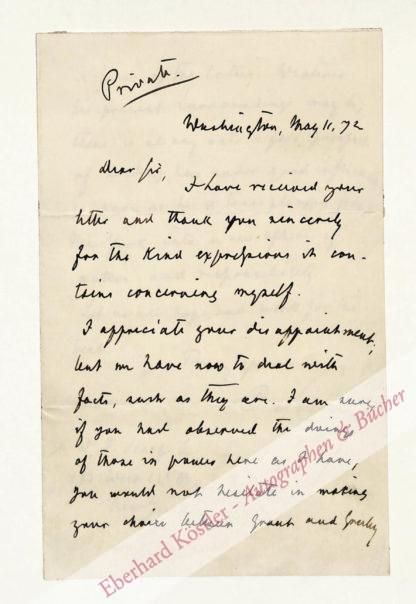 Private.
Washington, May 11, 72
dear Sir,
I have received your
letter and thank you sincerely
for the kind expressions it con-
tains concerning myself.
I appreciate your disappointment,
but we have now to deal with
facts, such as they are. I am sure,
if you had observed the doings
of those in power here as I have,
you would not hesitate in making
your choice between Grant and Greeley
Eberhard Köstler - Autographen & Bücher